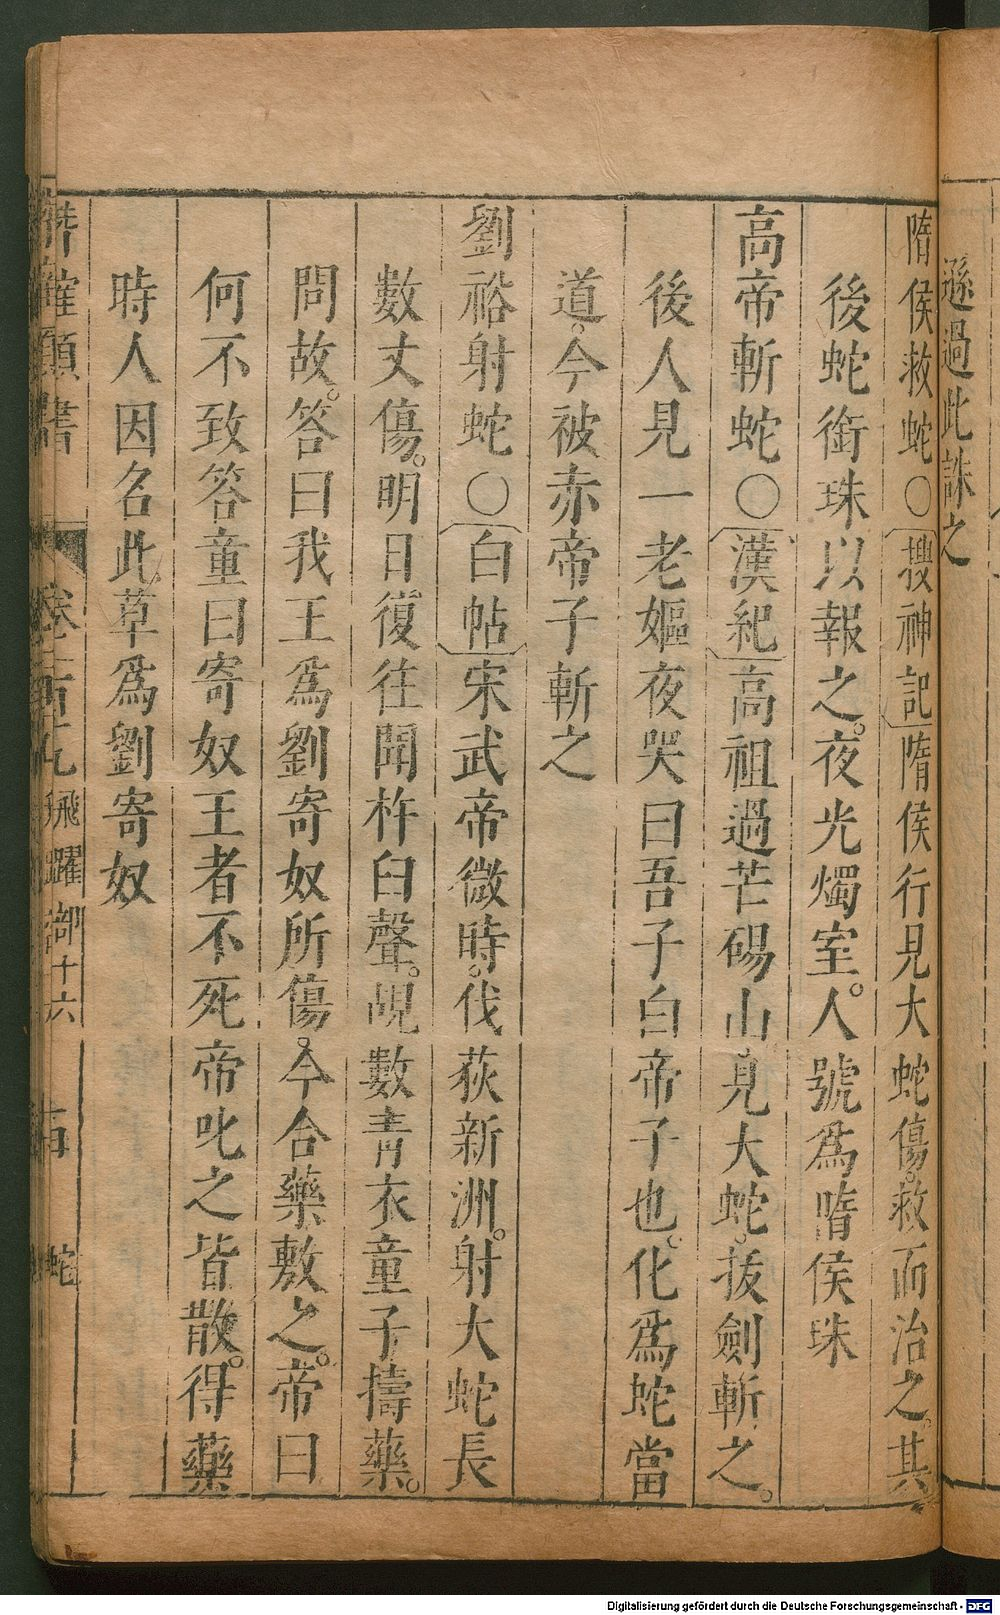 遜過此誅之
隋侯救蛇○搜神記隋侯行見大蛇傷。救而治之。其
後蛇銜珠以報之。夜光燭室。人號為隋侯珠
高帝斬蛇○漢紀高祖過芒碭山。見大蛇。拔劍斬之。
後人見一老嫗夜哭曰吾子白帝子也。化爲蛇當
道。今被赤帝子斬之
劉裕射蛇○白帖宋武帝微時。伐荻新洲。射大蛇長
數丈傷。明日復往聞杵臼聲。覘數青衣童子擣藥。
問故。答曰我王爲劉寄奴所傷。今合藥敷之。帝曰
何不致答童曰寄奴王者不死帝叱之皆散。得藥
時人因名此草爲劉寄奴
類書
飛躍部十六
蛇
Digitalisierung gefördert durch die Deutsche Forschungsgemeinschaft - DFG